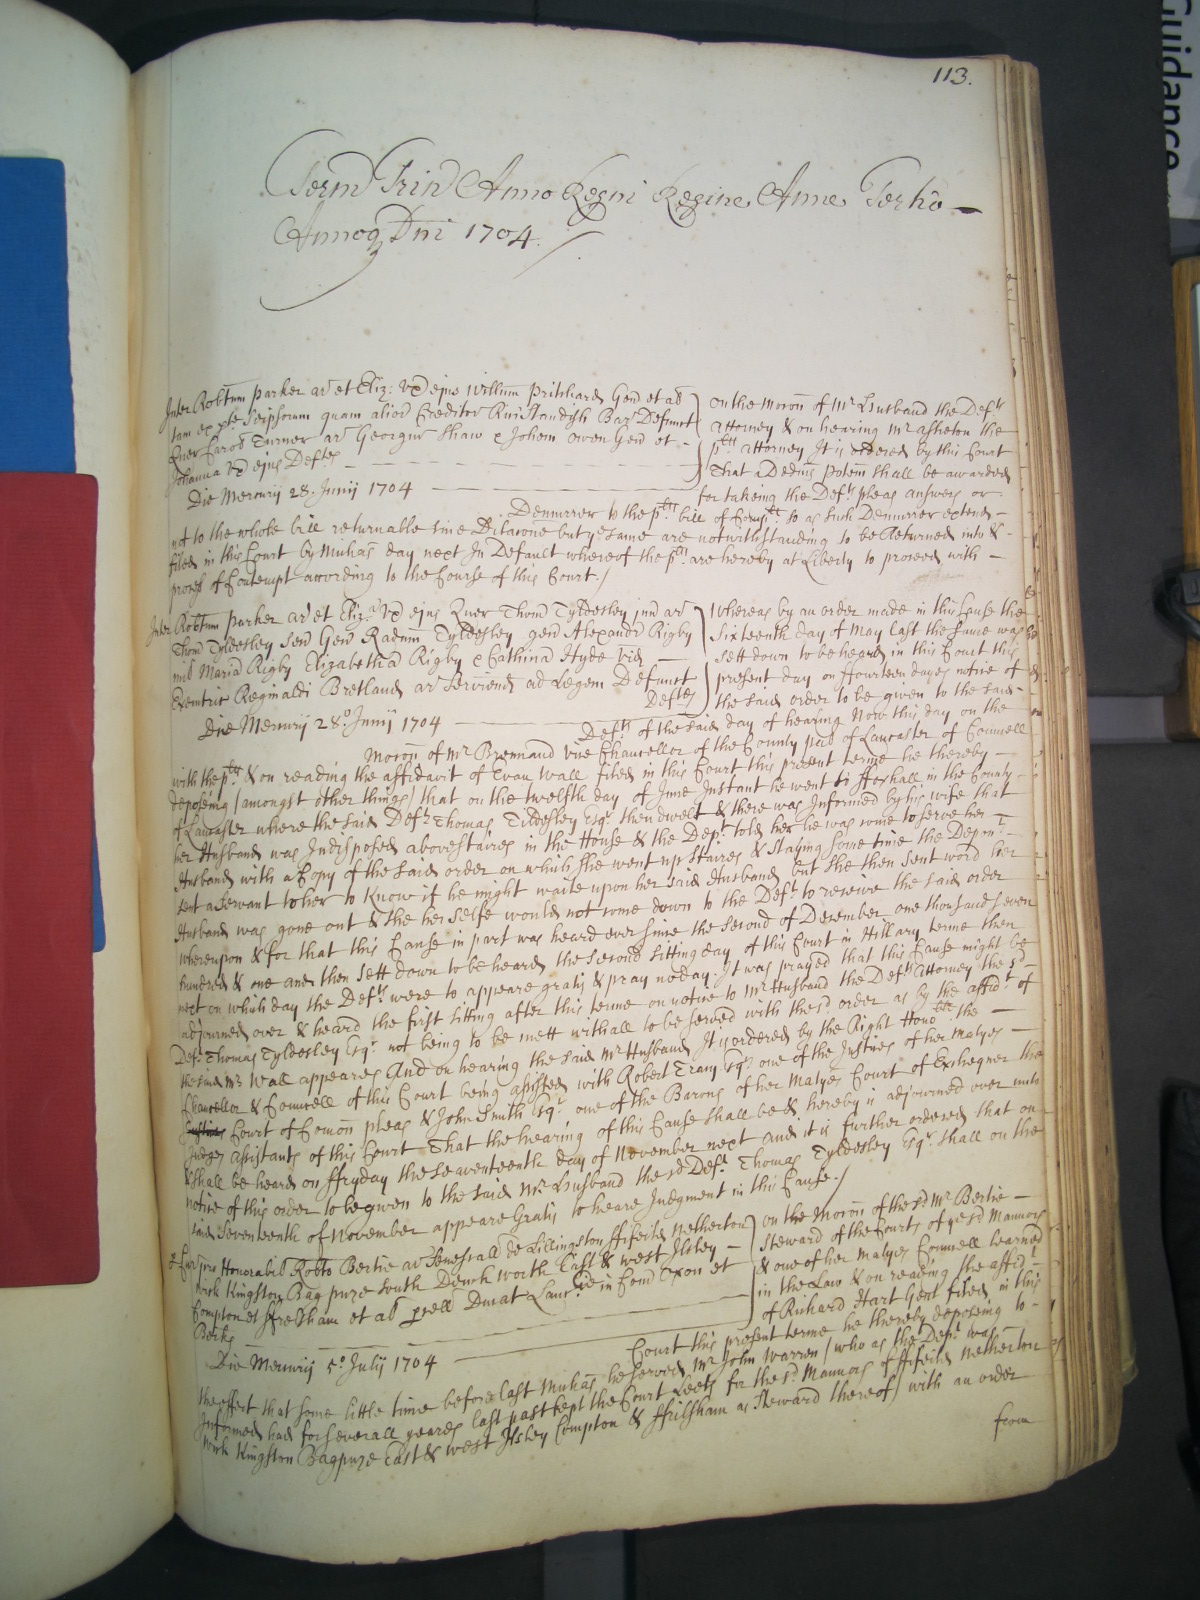 Guidance
113.
Term Trin Anno Regni Regine Anne Tertio
Annoq Dni 1704.
Inter Robtum Parker ar et Eliz: Vx ejus Willum Pritchard Gen et al
tam ex pte seipsorum quam alior Creditor Defunct
Quer Carol Turner ar Georgiu Shaw & Johem Owen Gen et
Johanna Vx ejus Deftes
Die Mercurij 28. Junij 1704
on the motion of Mr Husband the Defts
attorney & on hearing Mr Asheton the
plts attorney It is ordered by this Court
That a Dedmus Potem shall be awarded
for takeing the Defts pleas answers or
Demurrer to the plts bill of Complt so as such Demurrer extends
not to the whole bill returnable sine Dilacone but ye same are notwithstanding to be Returned into &
filed in this Court by Michas day next In Default whereof the plts are hereby at Liberty to proceed with
process of Contempt according to the Course of this Court./
Inter Robtum Parker ar et Eliz Vx ejus Quer Thom Tyldesley jun ar
Thom Tyldesley sen Gen Radum Tyldesley gen Alexandr Rigby
mil Maria Rigby Elizabetha Rigby & Catherina Hyde vid
Executric Reginaldi Bretland ar Servient ad Legem Defunct
Deftes
Die Mercurij 28o Junij 1704
Whereas by an order made in this Cause the
sixteenth day of May last the same was
sett down to be heard in this Court this
present day on ffourteen dayes notice of
the said order to be given to the said
Defts of the said day of hearing Now this day on the
Motion of Mr Brennand Vice Chancellor of the County pal of Lancaster of Councell
with the plts & on reading the affidavit of Evan Wall filed in this Court this present terme he thereby
deposeing (amongst other things) that on the twelfth day of June Instant he went to ffoxhall in the County
of Lancaster where the said Deft Thomas Tildesley Esqr then dwelt & there was Informed by his wife that
her Husband was Indisposed above staires in the House & the Dept told her he was come to serve her
Husband with a Copy of the said order on which she went up staires & staying some time the Depont
sent a Servant to her to know if he might waite upon her said Husband but she then sent word her
Husband was gone out & she her selfe would not come down to the Deft to receive the said order
whereupon & for that this Cause in part was heard ever since the second of December one thousand seven
hundred & one and then sett down to be heard the second sitting day of this Court in Hillary terme then
next on which day the Defts were to appeare gratis & pray noday. It was prayed that this Cause might be
adjourned over & heard the first sitting after this terme on notice to Mr Husband the Defts attorney the sd
Deft Thomas Tyldesley Esqr not being to be mett withall to be served with the sd order as by the affidt of
the said Mr Wall appeares And on hearing the said Mr Husband It is ordered by the Right Honoble the
Chancellor & Councell of this Court being assisted with Robert Tracy Esqr one of the Justices of her Matyes
Court of Comon pleas & John Smith Esqr one of the Barons of her Matyes Court of Exchequer the
Judges assistants of this Court That the hearing of this Cause shall be & hereby is adjourned over unto
& shall be heard on ffryday the seaventeenth day of November next and it is further ordered that on
notice of this order to be given to the said Mr Husband the sd Deft Thomas Tyldesley Esqr shall on the
said Seventeenth of November appeare Gratis to heare Judgment in this Cause./
Honorabil Robto Bertie ar Senescall de Lillingston ffifeild Netherton
Kingston Bagpuze South Denchworth East & west Ilsley
Compton et ffrilsham et al Ducat Lanc in Com Oxon et
Berks
Die Mercurij 5o Julij 1704
on the Motion of the sd Mr Bertie
Steward of the Courts of ye sd Mannors
& one of her Matyes Councell Learned
in the Law & on reading the affidt
of Richard Hart Gent filed in this
Court this present terme he thereby deposeing to
the effect that some little time before last Michas he served Mr John Warren (who as the Dept was
Informed had for severall yeares last past kept the Court Leets for the sd Mannors of ffifeild Netherton
Kingston Bagpuze East & west Ilsley Compton & ffrilsham as Steward thereof) with an order
from